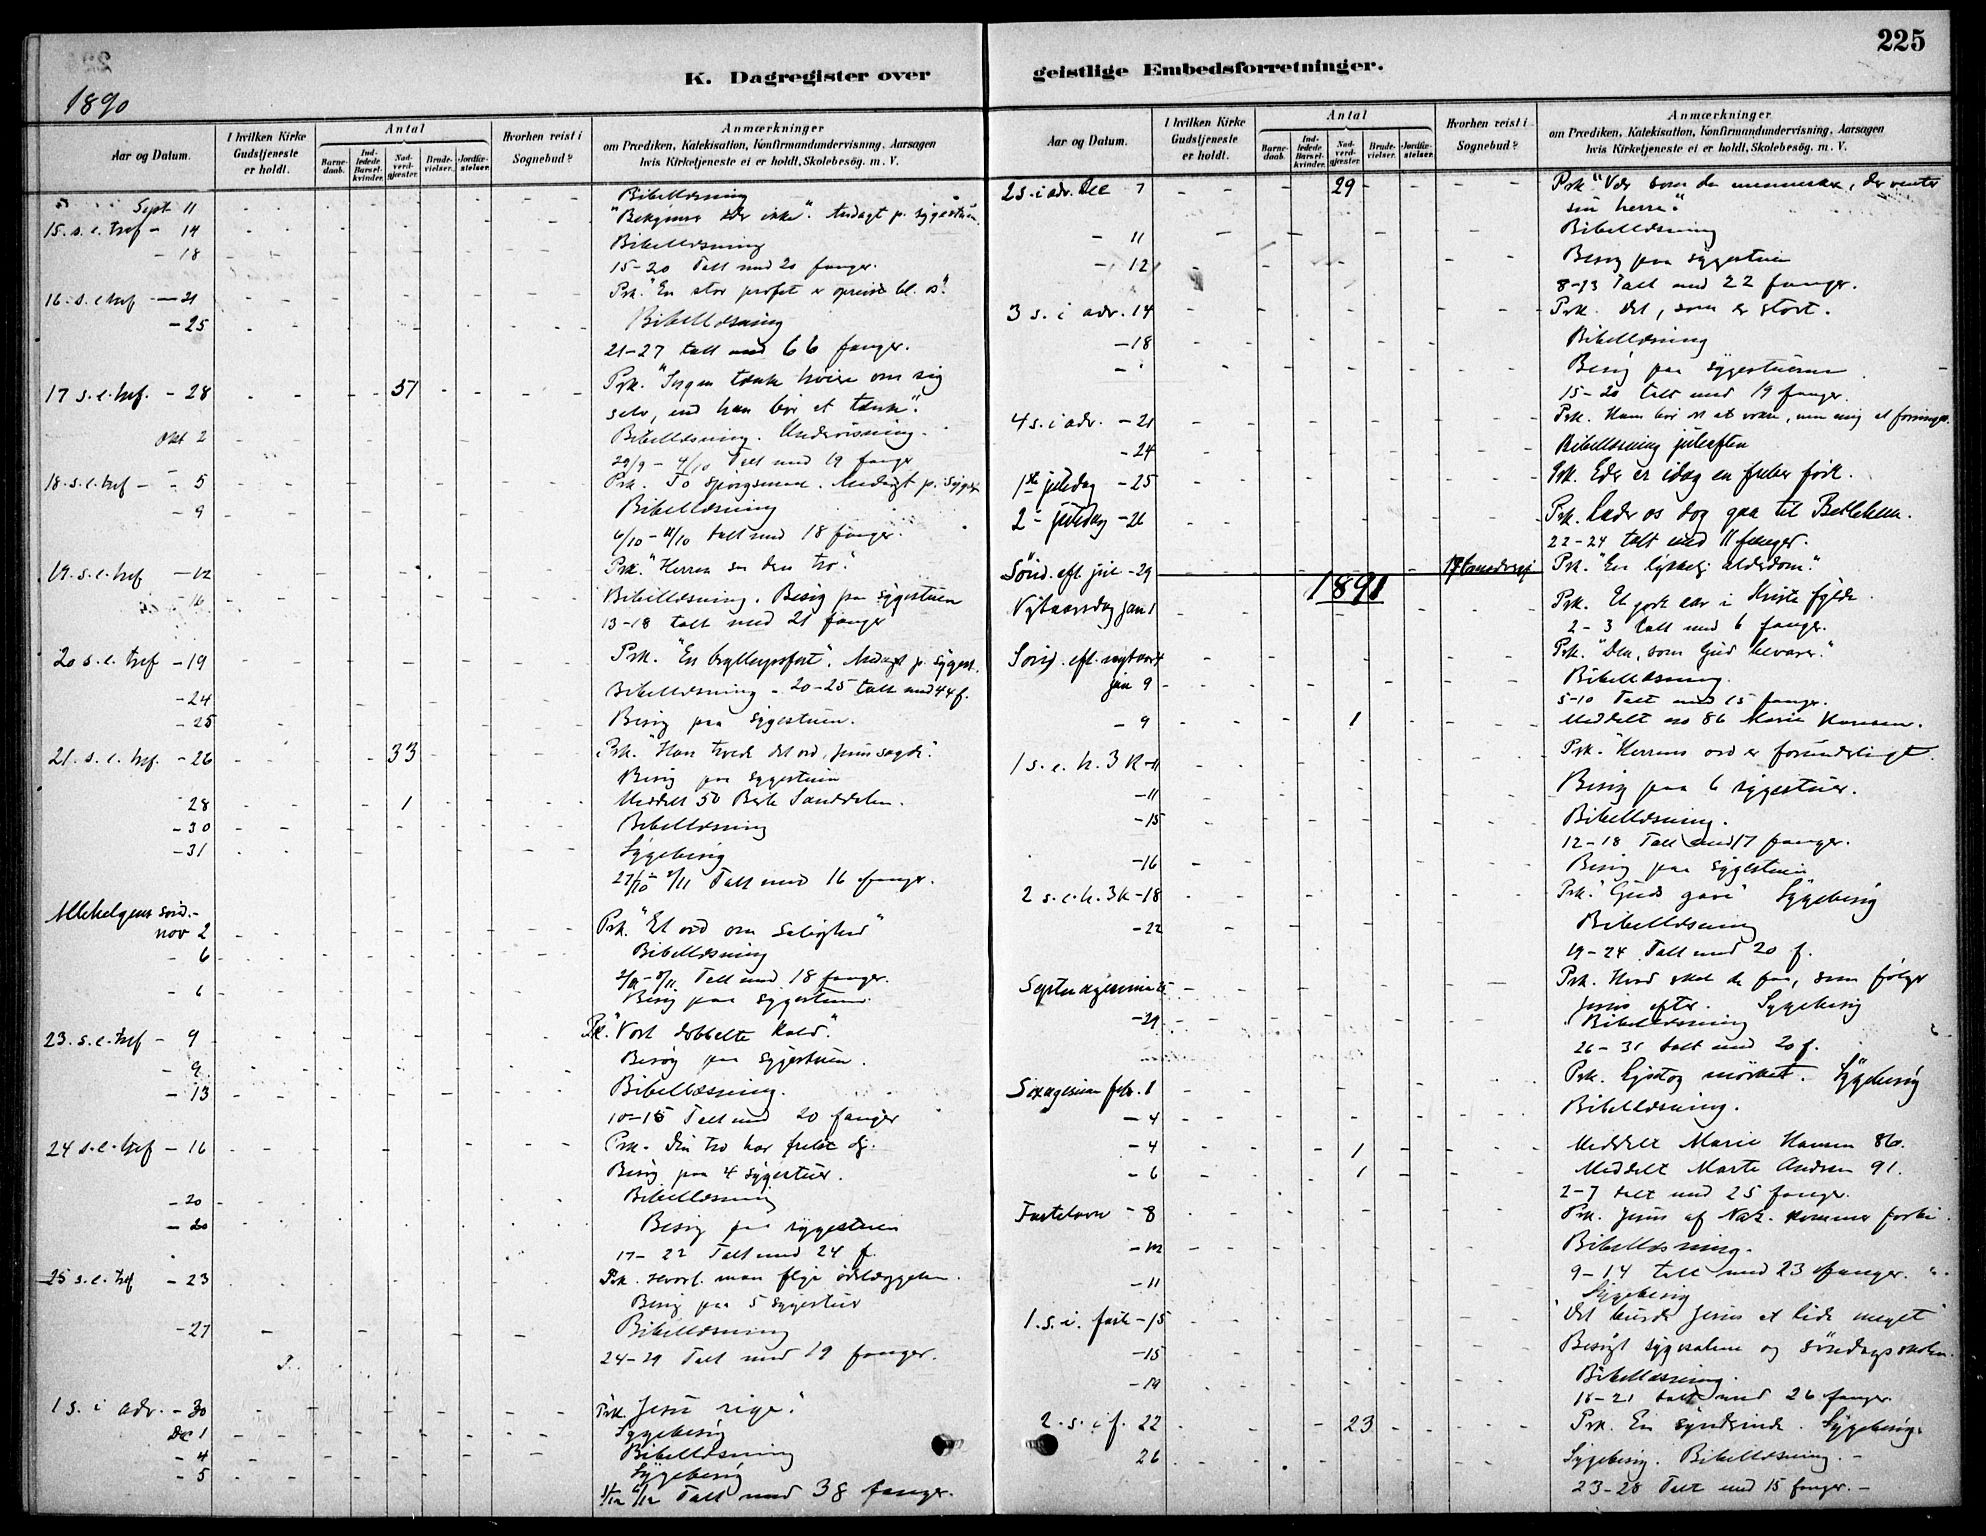 225
K. Dagregister over
geistlige Embedsforretninger.
1890
Aar og Datum.
I hvilken Kirke Gudstjeneste er holdt.
Antal
Barnedaab.
Indledede Barselkvinder.
Nadverdgjæster.
Brudevielser.
Jordfæstelser.
Hvorhen reist i Sognebud?
Anmærkninger
om Prædiken, Katekisation, Konfirmandundervisning, Aarsagen
hvis Kirketjeneste ei er holdt, Skolebesög. m. V.
Bibellæsning
Sept 11
15. s. e. tref - 14
- 18 Bibellæsning
15-20 Talt med 20 fanger.
16. s. e. tref - 21 Prk. "En stor profet er opreist bl. os".
- 25 Bibellæsning
21-27 talt med 66 fanger.
17 s. e. tref. - 28 51 Prk. "Ingen tænke høiere om sig
selv, end han bør at tænke".
Okt 2 Bibellæsning. Undervisning.
29/9 - 4/10 Talt med 19 fanger
18. s. e. tref - 5 Prk. To spørgsmaal. Andagt p. sygest
- 9 Bibellæsning
6/10 - 11/10 talt med 18 fanger.
19. s. e. tref - 12 Prk. "Herren son den tro".
- 16 Bibellæsning. Besøg paa sygestuen
13-18 talt med 21 fanger
20 s. e. tref - 19 Prk. "En bryllupsfest". Andagt p. sygest.
- 24 Bibellæsning - 20-25 talt med 44 f.
- 25 Besøg paa sygestuen.
21. s. e. tref. - 26 33 Prk. "Han troede det ord, Jesus sagde".
Besøg paa sygestuen
28 1 Meddelt 50 Berte Sanddalen.
- 30 Bibellæsning
- 31 Sygebesøg
27/10 - 1/11 Talt med 16 fanger.
Allehelgens sønd. -
nov 2 Prk. "Et ord om salighed"
- 6 Bibellæsning
Talt med 18 fanger.
- 6 Besøg paa sygestuen.
23. s. e. tref - 9 Prk. "Vort dobbelte kald".
- 9 Besøg paa sygestuen.
- 13 Bibellæsning.
10-15 Talt med 20 fanger
24 s. e. tref - 16 Prk. Din tro har frelst dig.
Besøg paa 4 sygestuer.
- 20 Bibellæsning
- 20 Besøg paa sygestuen
17-22 Talt med 24 f.
25 s. e. tref - 23 Prk. Hvorl. man flyr ødelæggelsen.
Besøg paa 5 sygestuer
- 27 Bibellæsning
24-29 Talt med 19 fanger.
1 s. i adv. - 30 Prk. Jesu rige".
Dec 1 Sygebesøg
- 4 Bibellæsning
- 5 Sygebesøg
Talt med 38 fanger.
Aar og Datum.
I hvilken Kirke Gudstjeneste er holdt.
Antal
Barnedaab.
Indledede Barselkvinder.
Nadverdgjæster.
Brudevielser.
Jordfæstelser.
Hvorhen reist i Sognebud?
Anmærkninger
om Prædiken, Katekisation, Konfirmandundervisning, Aarsagen
hvis Kirketjeneste ei er holdt, Skolebesög. m. V.
2 s. i adv. Dec 7 29 Prk. "Vær som de mennesker, der venter
sin herre".
- 11 Bibellæsning
- 12 Besøg paa sygestuen
8-13 Talt med 22 fanger.
3 s. i adv. 14 Prk. Det, som er stort.
- 18 Bibellæsning
Besøg paa sygestuerne
15-20 talt med 19 fanger.
4 s. i adv. - 21 Prk. Ham bør det at vokse, men mig at forringes.
- 24 Bibellæsning juleaften
1ste juledag - 25 Prk. Eder er idag en frelser født.
2 - juledag - 26 Prk. Lader os dog gaa til Betlehem.
22-24 talt med 11 fanger.
Sønd. eft. jul - 29 Prk. "En lykkelig alderdom".
1891
Nytaarsdag jan 1 Prk. Et godt aar i Kristi fylde.
2-3 talt med 6 fanger.
Sønd. eft. nytaar 4 Prk. "Den, som Gud bevarer."
jan 9 Bibellæsning.
5-10 Talt med 15 fanger.
- 9 1 Meddelt no 86 Marie Hansen.
1 s. e. h. 3 K - 11 Prk. "Herrens ord er forunderligt.
- 11 Besøg paa 6 sygestuer.
- 15 Bibellæsning.
12-18 Talt med 17 fanger.
- 16 Besøg paa sygestuen
2 s. e. h. 3 K - 18 Prk. "Guds gave" Sygebesøg
- 22 Bibellæsning
19-24 Talt med 20 f.
Septuagesima 25 - Prk. Hvad skal de faa, som følger
Jesus efter. Sygebesøg
- 29 Bibellæsning
26-31 talt med 20 f.
Sexagesima febr. 1 Prk. Lys og mørket. Sygebesøg
- 4 Bibellæsning.
- 4 1 Meddelt Marie Hansen 86.
- 6 1 Meddelt Marte Andsen 91.
2-7 talt med 25 fanger.
Fastelavn - 8 Prk. Jesus af Naz. kommer forbi.
- 12 Bibellæsning.
9-14 talt med 23 fanger.
- 11 Sygebesøg
1. s. i. faste - 15 "Det burde Jesus at lide meget"
- 15 Besøgt sygesalene og søndagsskolen.
- 19 Bibellæsning.
16-21 talt med 26 fanger.
2. s. i f. 22 23 Prk. En synderinde. Sygebesøg.
26 Sygebesøg. Bibellæsning. -
23-28 Talt med 15 fanger. -